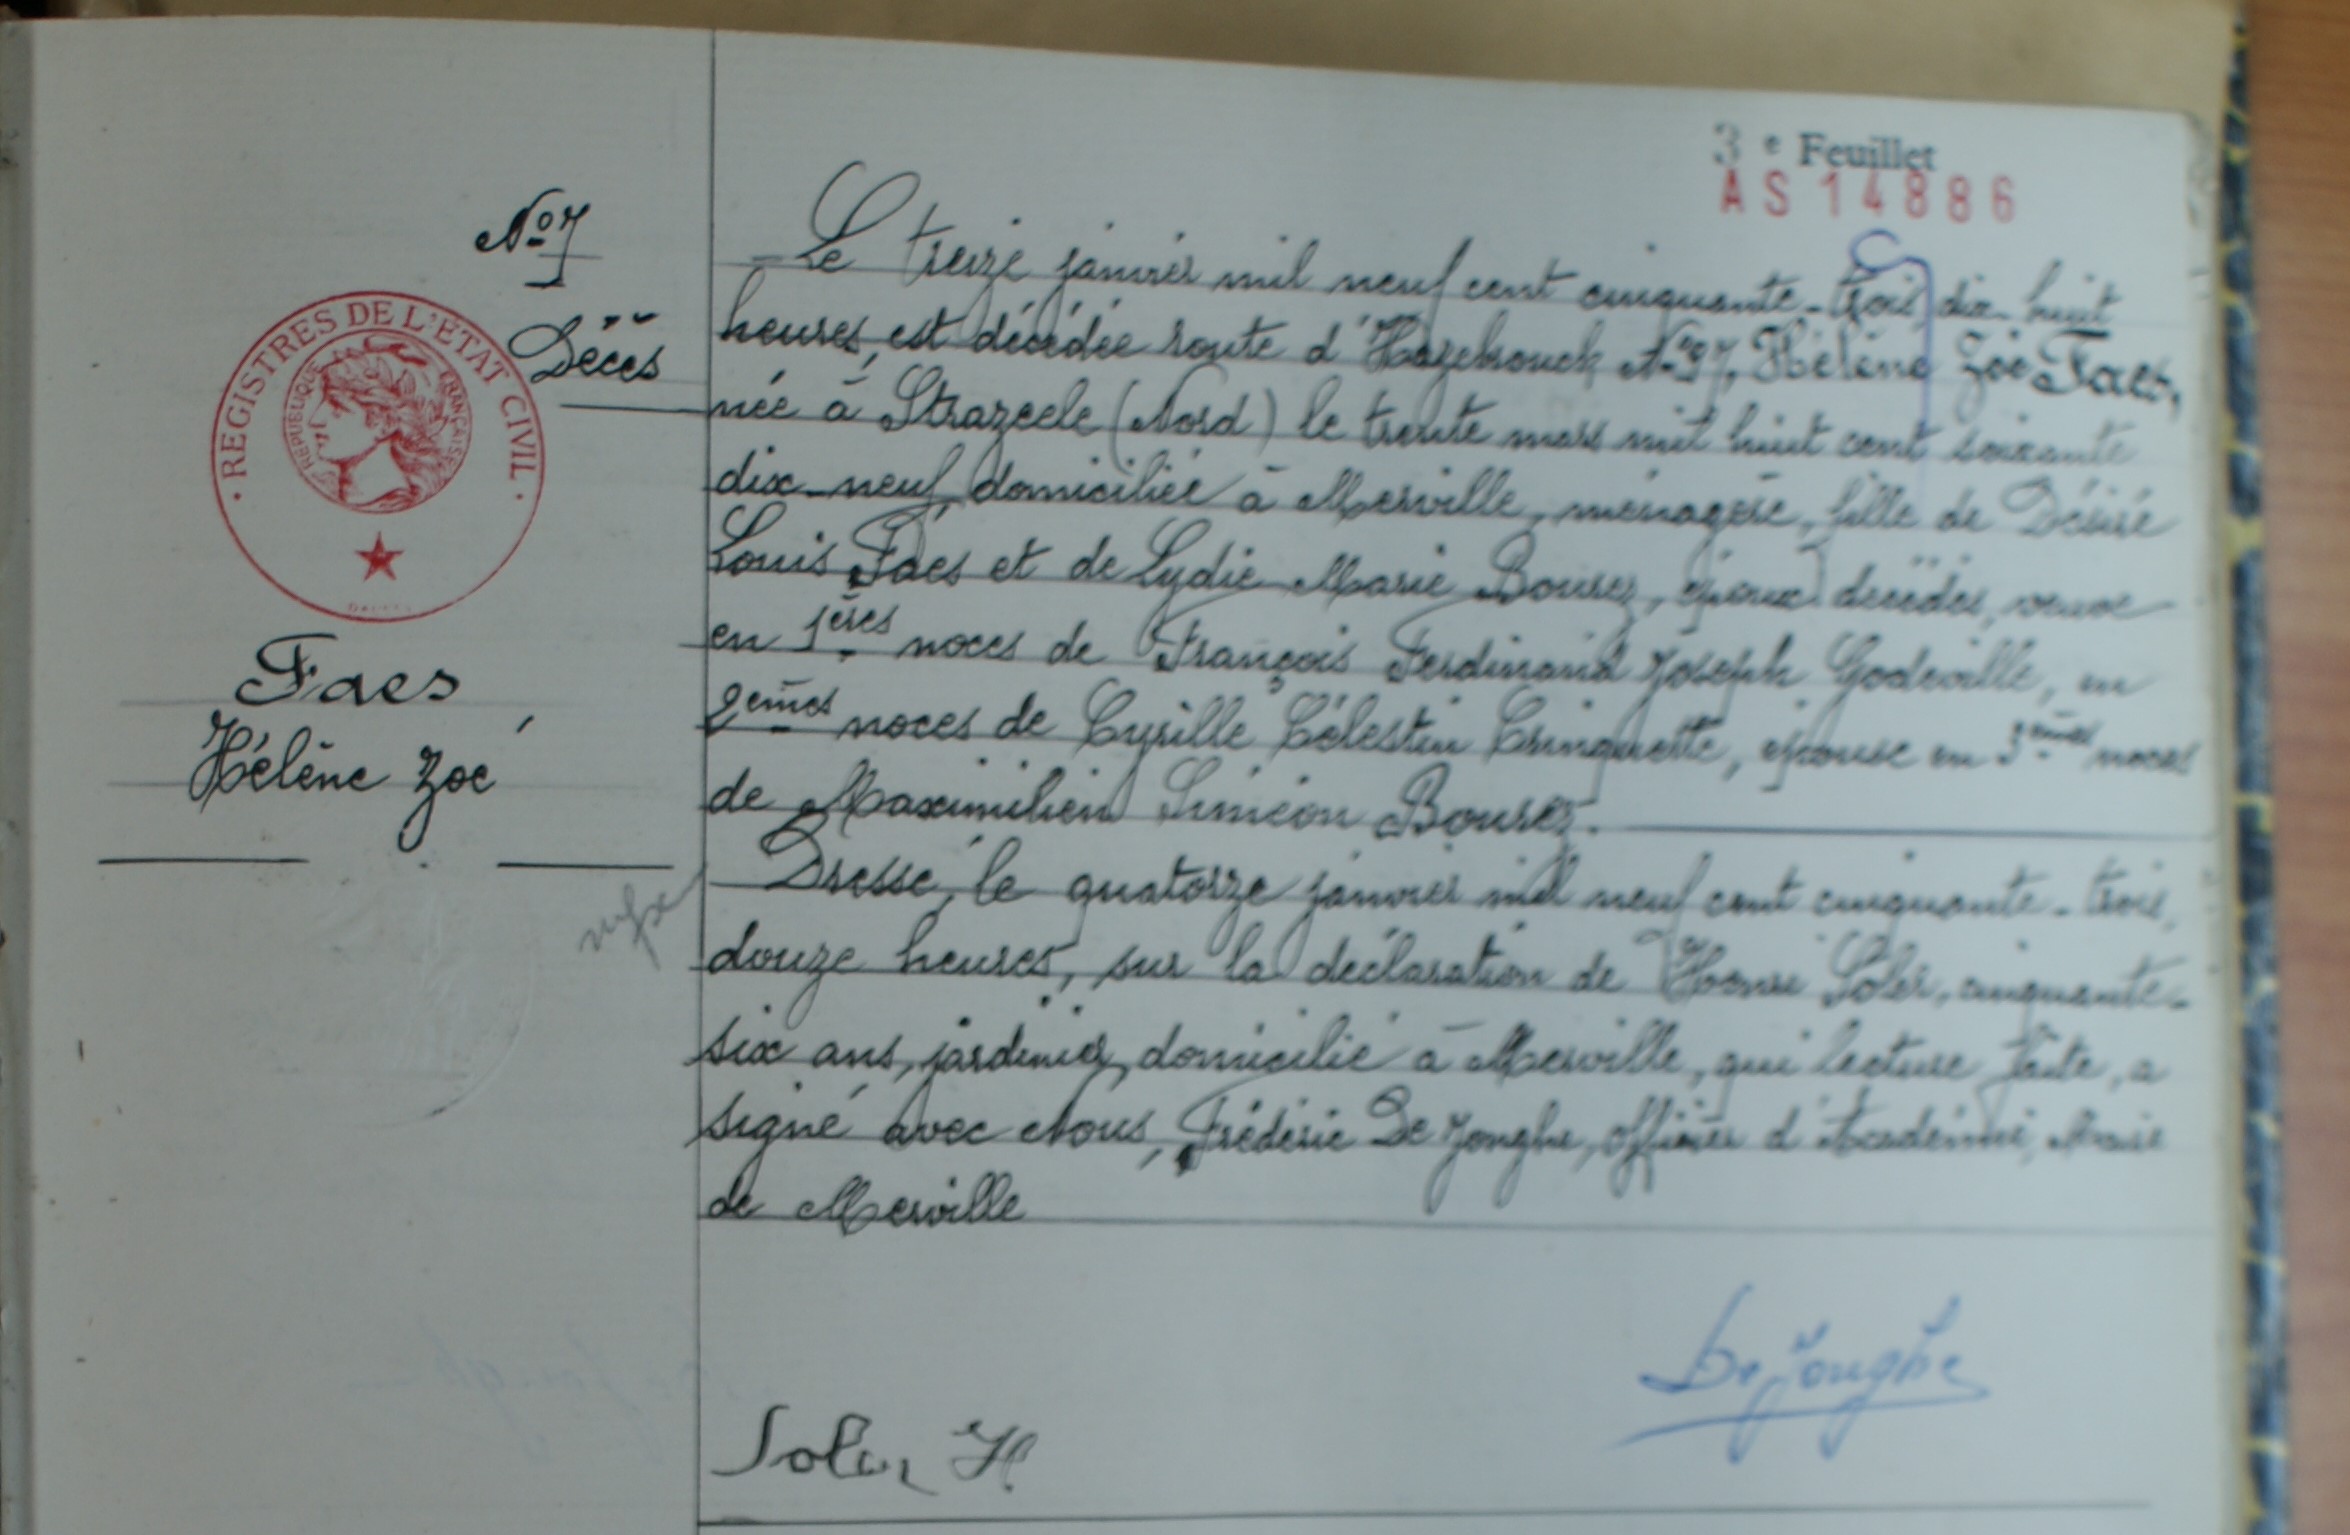 3 e Feuillet
AS 14886
No 7
Décès
REGISTRES DE L'ÉTAT CIVIL
RÉPUBLIQUE FRANÇAISE
Faes
Hélène Zoé
Le treize janvier mil neuf cent cinquante-trois, dix-huit
heures, est décédée route d'Hazebrouck No 97, Hélène Zoé Faes,
née à Strazeele (Nord) le trente mars mil huit cent soixante
dix-neuf, domiciliée à Merville, ménagère, fille de Désiré
Louis Faes et de Lydie Marie Bourez, époux décédés, veuve
en 1ères noces de François Ferdinand Joseph Godeville, en
2èmes noces de Cyrille Célestin Crinquette, épouse en 3èmes noces
de Maximilien Siméon Bourez.
Dressé, le quatorze janvier mil neuf cent cinquante-trois,
douze heures, sur la déclaration de Soler, cinquante-
six ans, jardinier, domicilié à Merville, qui lecture faite, a
signé avec Nous, Frédéric De Jonghe, officier d'Académie, Maire
de Merville
De Jonghe
Soler H